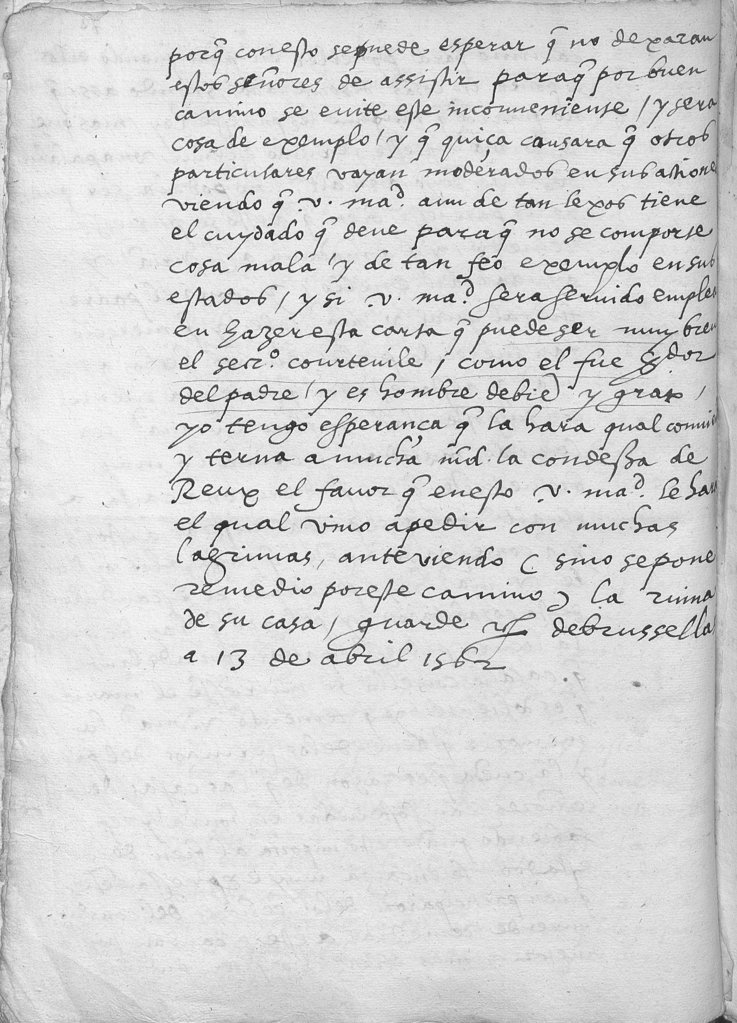 porq̃ conesto sepuede esperar q̃ no dexaran
estos señores de assistir paraq̃ por buen
camino se euite este inconueniente / y sera
cosa de exemplo / y q̃ quiça causara q̃ otros
particulares vayan moderados en sus actione
viendo q̃ .v. ma.d aun de tan lexos tiene
el cuydado q̃ deue paraq̃ no se comporte
cosa mala / y de tan feo exemplo en sus
estados / y si .v. ma.d sera seruido emplea
en hazer esta carta q̃ puede ser muy bre
el secr.o courteuile / como el fue
del padre / y es hombre debie) y
yo tengo esperança q̃ la hara qual conuie
y terna a mucha md. la condessa de
Reux el fauor q̃ enesto .v. ma.d le hara
el qual vino apedir con muchas
lagrimas, anteviendo ( sino sepone
remedio poreste camino ) la ruina
de su casa / guarde debrussella
a 13 de abril 1562